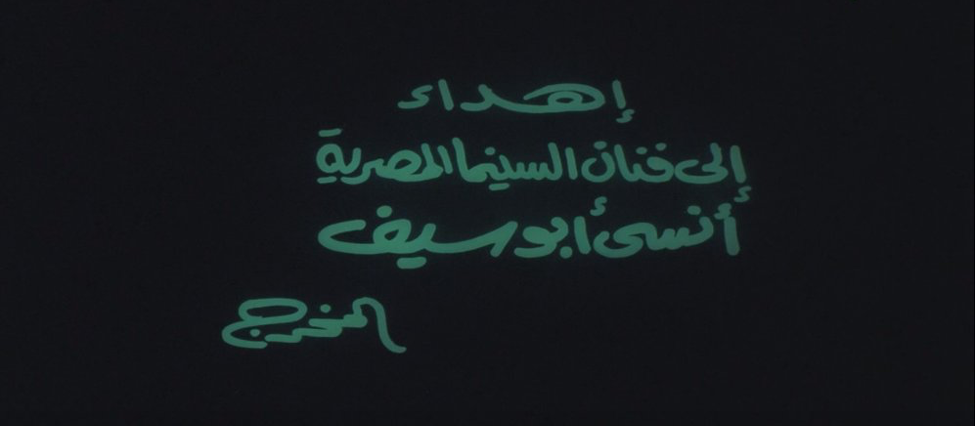 إهداء
إلى فنان السينما المصرية
أنسى أبو سيف
المخرج